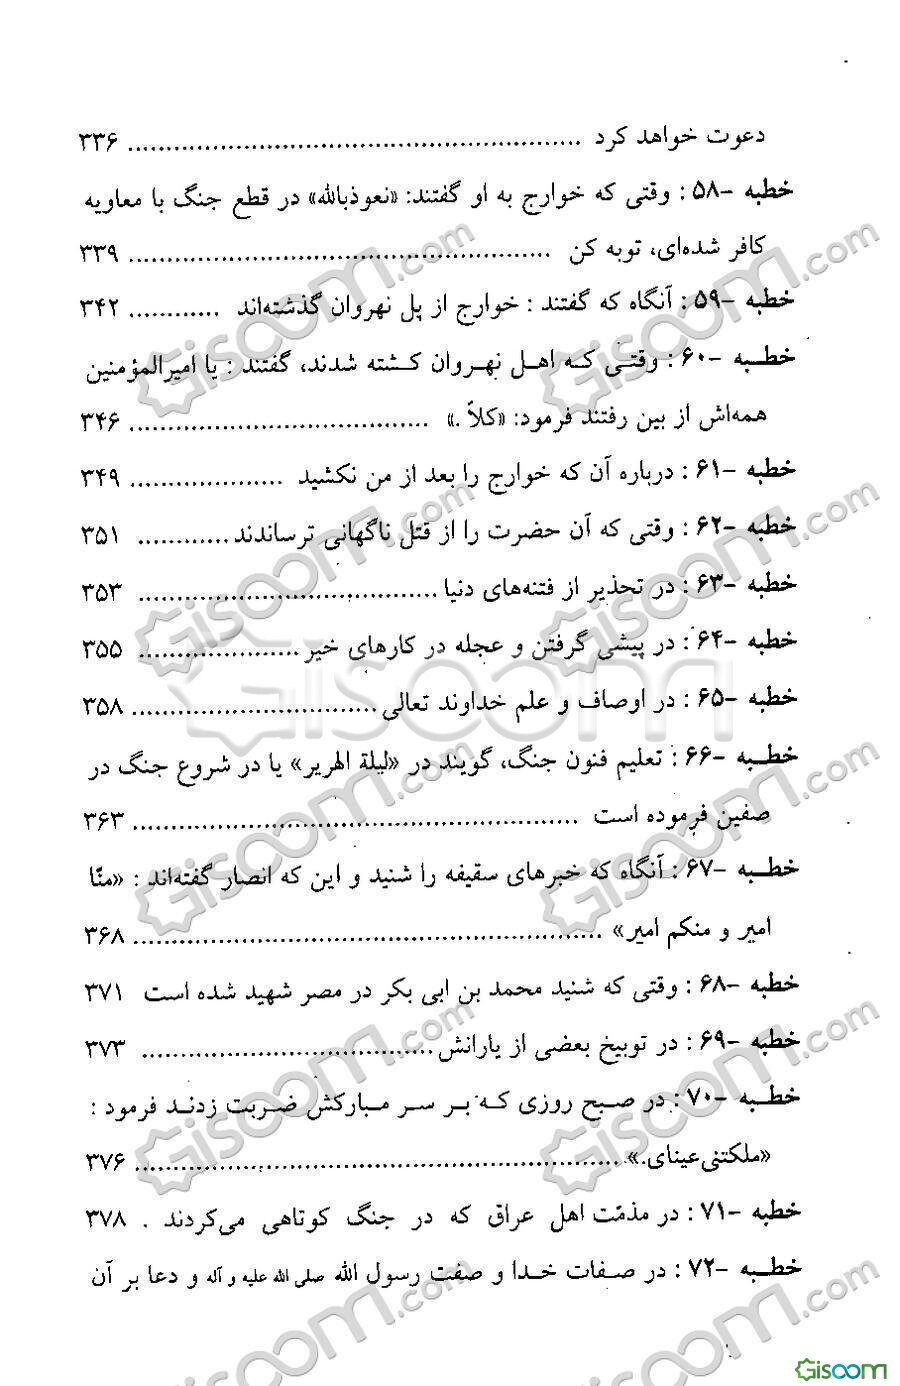 دعوت خواهد کرد ............................................................ ۳۳۶
خطبه -۵۸ : وقتی که خوارج به او گفتند: «نعوذبالله» در قطع جنگ با معاویه
کافر شده‌ای، توبه کن ....................................................... ۳۳۹
خطبه -۵۹ : آنگاه که گفتند : خوارج از پل نهروان گذشته‌اند ............ ۳۴۲
خطبه -۶۰ : وقتی که اهل نهروان کشته شدند، گفتند : یا امیرالمؤمنین
همه‌اش از بین رفتند فرمود: «کلاّ .» ....................................... ۳۴۶
خطبه -۶۱ : درباره آن که خوارج را بعد از من نکشید .................... ۳۴۹
خطبه -۶۲ : وقتی که آن حضرت را از قتل ناگهانی ترساندند ............ ۳۵۱
خطبه -۶۳ : در تحذیر از فتنه‌های دنیا ....................................... ۳۵۳
خطبه -۶۴ : در پیشی گرفتن و عجله در کارهای خیر ..................... ۳۵۵
خطبه -۶۵ : در اوصاف و علم خداوند تعالی ................................ ۳۵۸
خطبه -۶۶ : تعلیم فنون جنگ، گویند در «لیلة الهریر» یا در شروع جنگ در
صفین فرموده است .......................................................... ۳۶۳
خطبه -۶۷ : آنگاه که خبرهای سقیفه را شنید و این که انصار گفته‌اند : «منّا
امیر و منکم امیر» ............................................................. ۳۶۸
خطبه -۶۸ : وقتی که شنید محمد بن ابی بکر در مصر شهید شده است ۳۷۱
خطبه -۶۹ : در توبیخ بعضی از یارانش ...................................... ۳۷۳
خطبه -۷۰ : در صبح روزی که بر سر مبارکش ضربت زدند فرمود :
«ملکتنی‌عینای.» ................................................................ ۳۷۶
خطبه -۷۱ : در مذمّت اهل عراق که در جنگ کوتاهی می‌کردند . ۳۷۸
خطبه -۷۲ : در صفات خدا و صفت رسول الله صلی الله علیه و آله و دعا بر آن
Gisoom
Gisoom.com